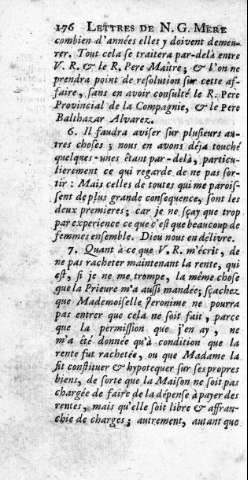 176 LETTRES DE N. G. MERE
combien d'années elles y doivent demeu-
rer. Tout cela se traitera par-delà entre
V. R. & le R. Pere Maître; & l'on ne
prendra point de resolution sur cette af-
faire, sans en avoir consulté le R. Pere
Provincial de la Compagnie, & le Pere
Balthazar Alvarez.
6. Il faudra aviser sur plusieurs au-
tres choses; nous en avons déja touché
quelques-unes étant par-delà, particu-
lierement ce qui regarde de ne pas sor-
tir: Mais celles de toutes qui me parois-
sent de plus grande consequence, sont les
deux premieres; car je ne sçay que trop
par experience ce que c'est que beaucoup de
femmes ensemble. Dieu nous en délivre.
7. Quant à ce que V. R. m'écrit, de
ne pas racheter maintenant la rente, qui
est, si je ne me trompe, la même chose
que la Prieure m'a aussi mandée; sçachez
que Mademoiselle Jeronime ne pourra
pas entrer que cela ne soit fait, parce
que la permission que j'en ay, ne
m'a été donnée qu'à condition que la
rente fut rachetée, ou que Madame la
fit constituer & hypotequer sur ses propres
biens, de sorte que la Maison ne soit pas
chargée de faire de la dépense à payer des
rentes, mais qu'elle soit libre & affran-
chie de charges; autrement, autant que